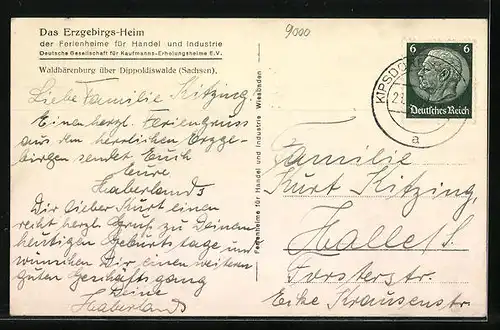 Das Erzgebirgs-Heim
der Ferienheime für Handel und Industrie
Deutsche Gesellschaft für Kaufmanns-Erholungsheime E.V.
Waldbärenburg über Dippoldiswalde (Sachsen).
9000
Liebe Familie Kitzing,
Einen herzl. Feriengruss
aus dem herrlichen Erzge-
birgen sendet Euch
Eure
Haberlands
Dir lieber Kurt einen
recht herzl. Gruß zu Deinem
heutigen Geburtstage und
wünschen Dir einen weitern
guten Geschäftsgang
Deine
Haberlands
Ferienheime für Handel und Industrie Wiesbaden
6 6
Deutsches Reich
KIPSDO
a
Familie
Kurt Kitzing,
Halle/S.
Forsterstr.
Ecke Krausenstr.